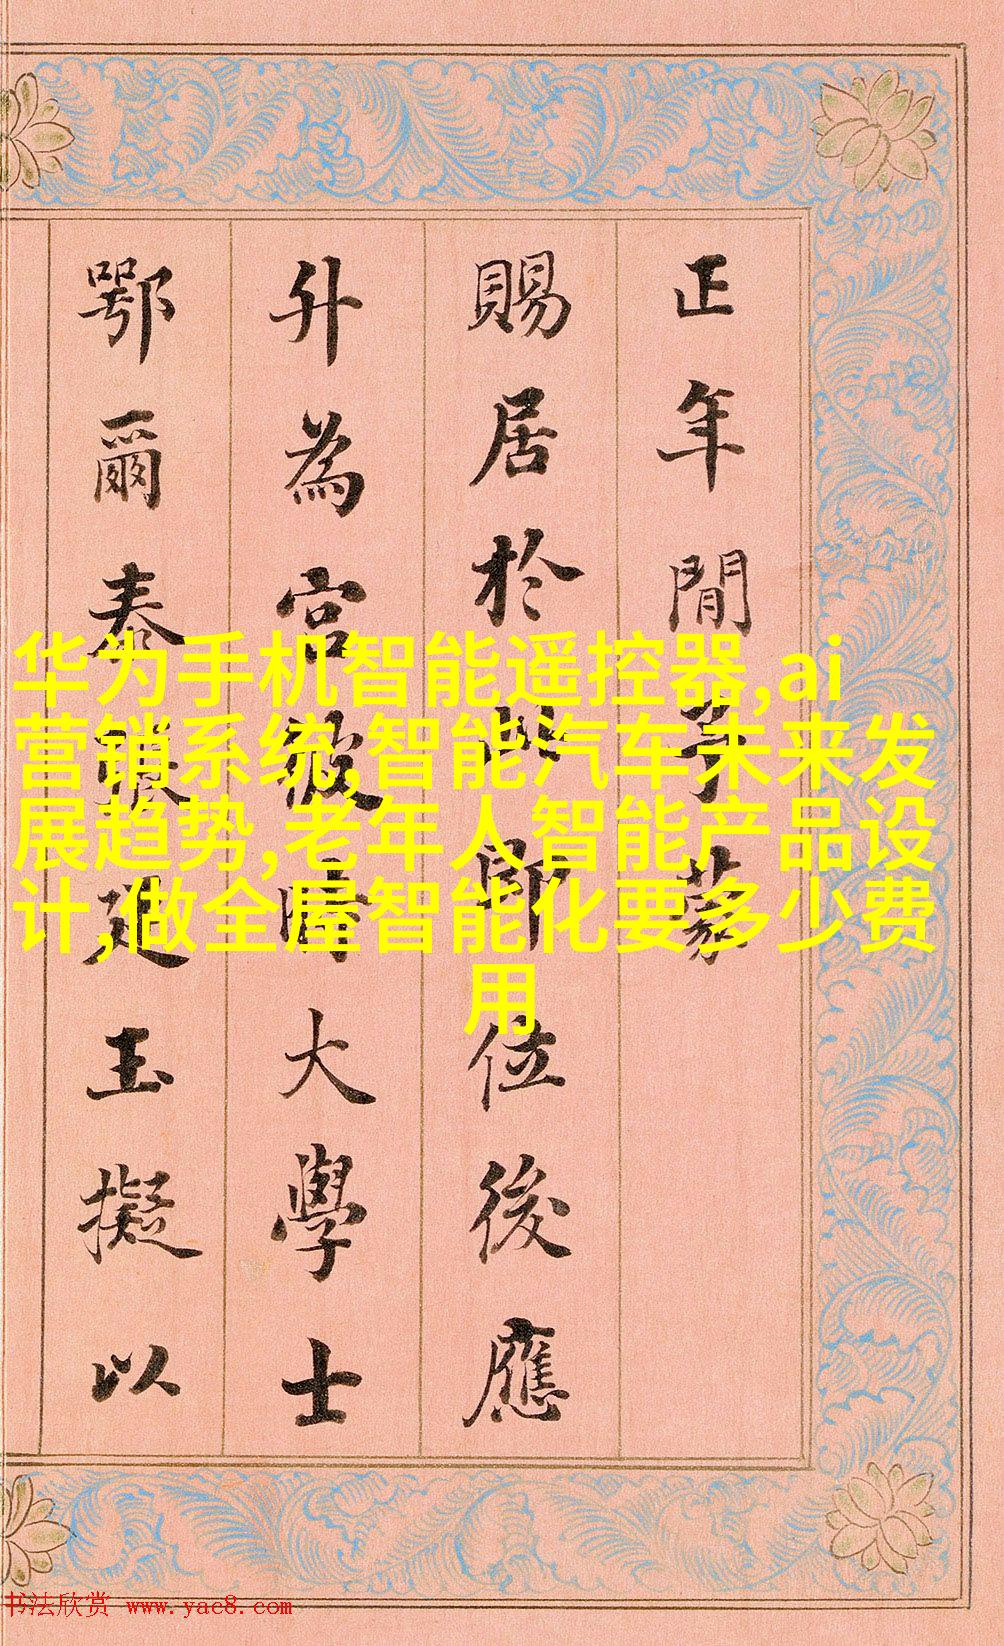 正年間予蒙
賜居於此即位後應
升為宮彼時大學士
鄂爾泰張廷玉擬以
华为手机智能遥控器,ai
营销系统,智能汽车未来发
展趋势,老年人智能产品设
计,做全屋智能化要多少费
用
书法欣赏 www.yac8.com